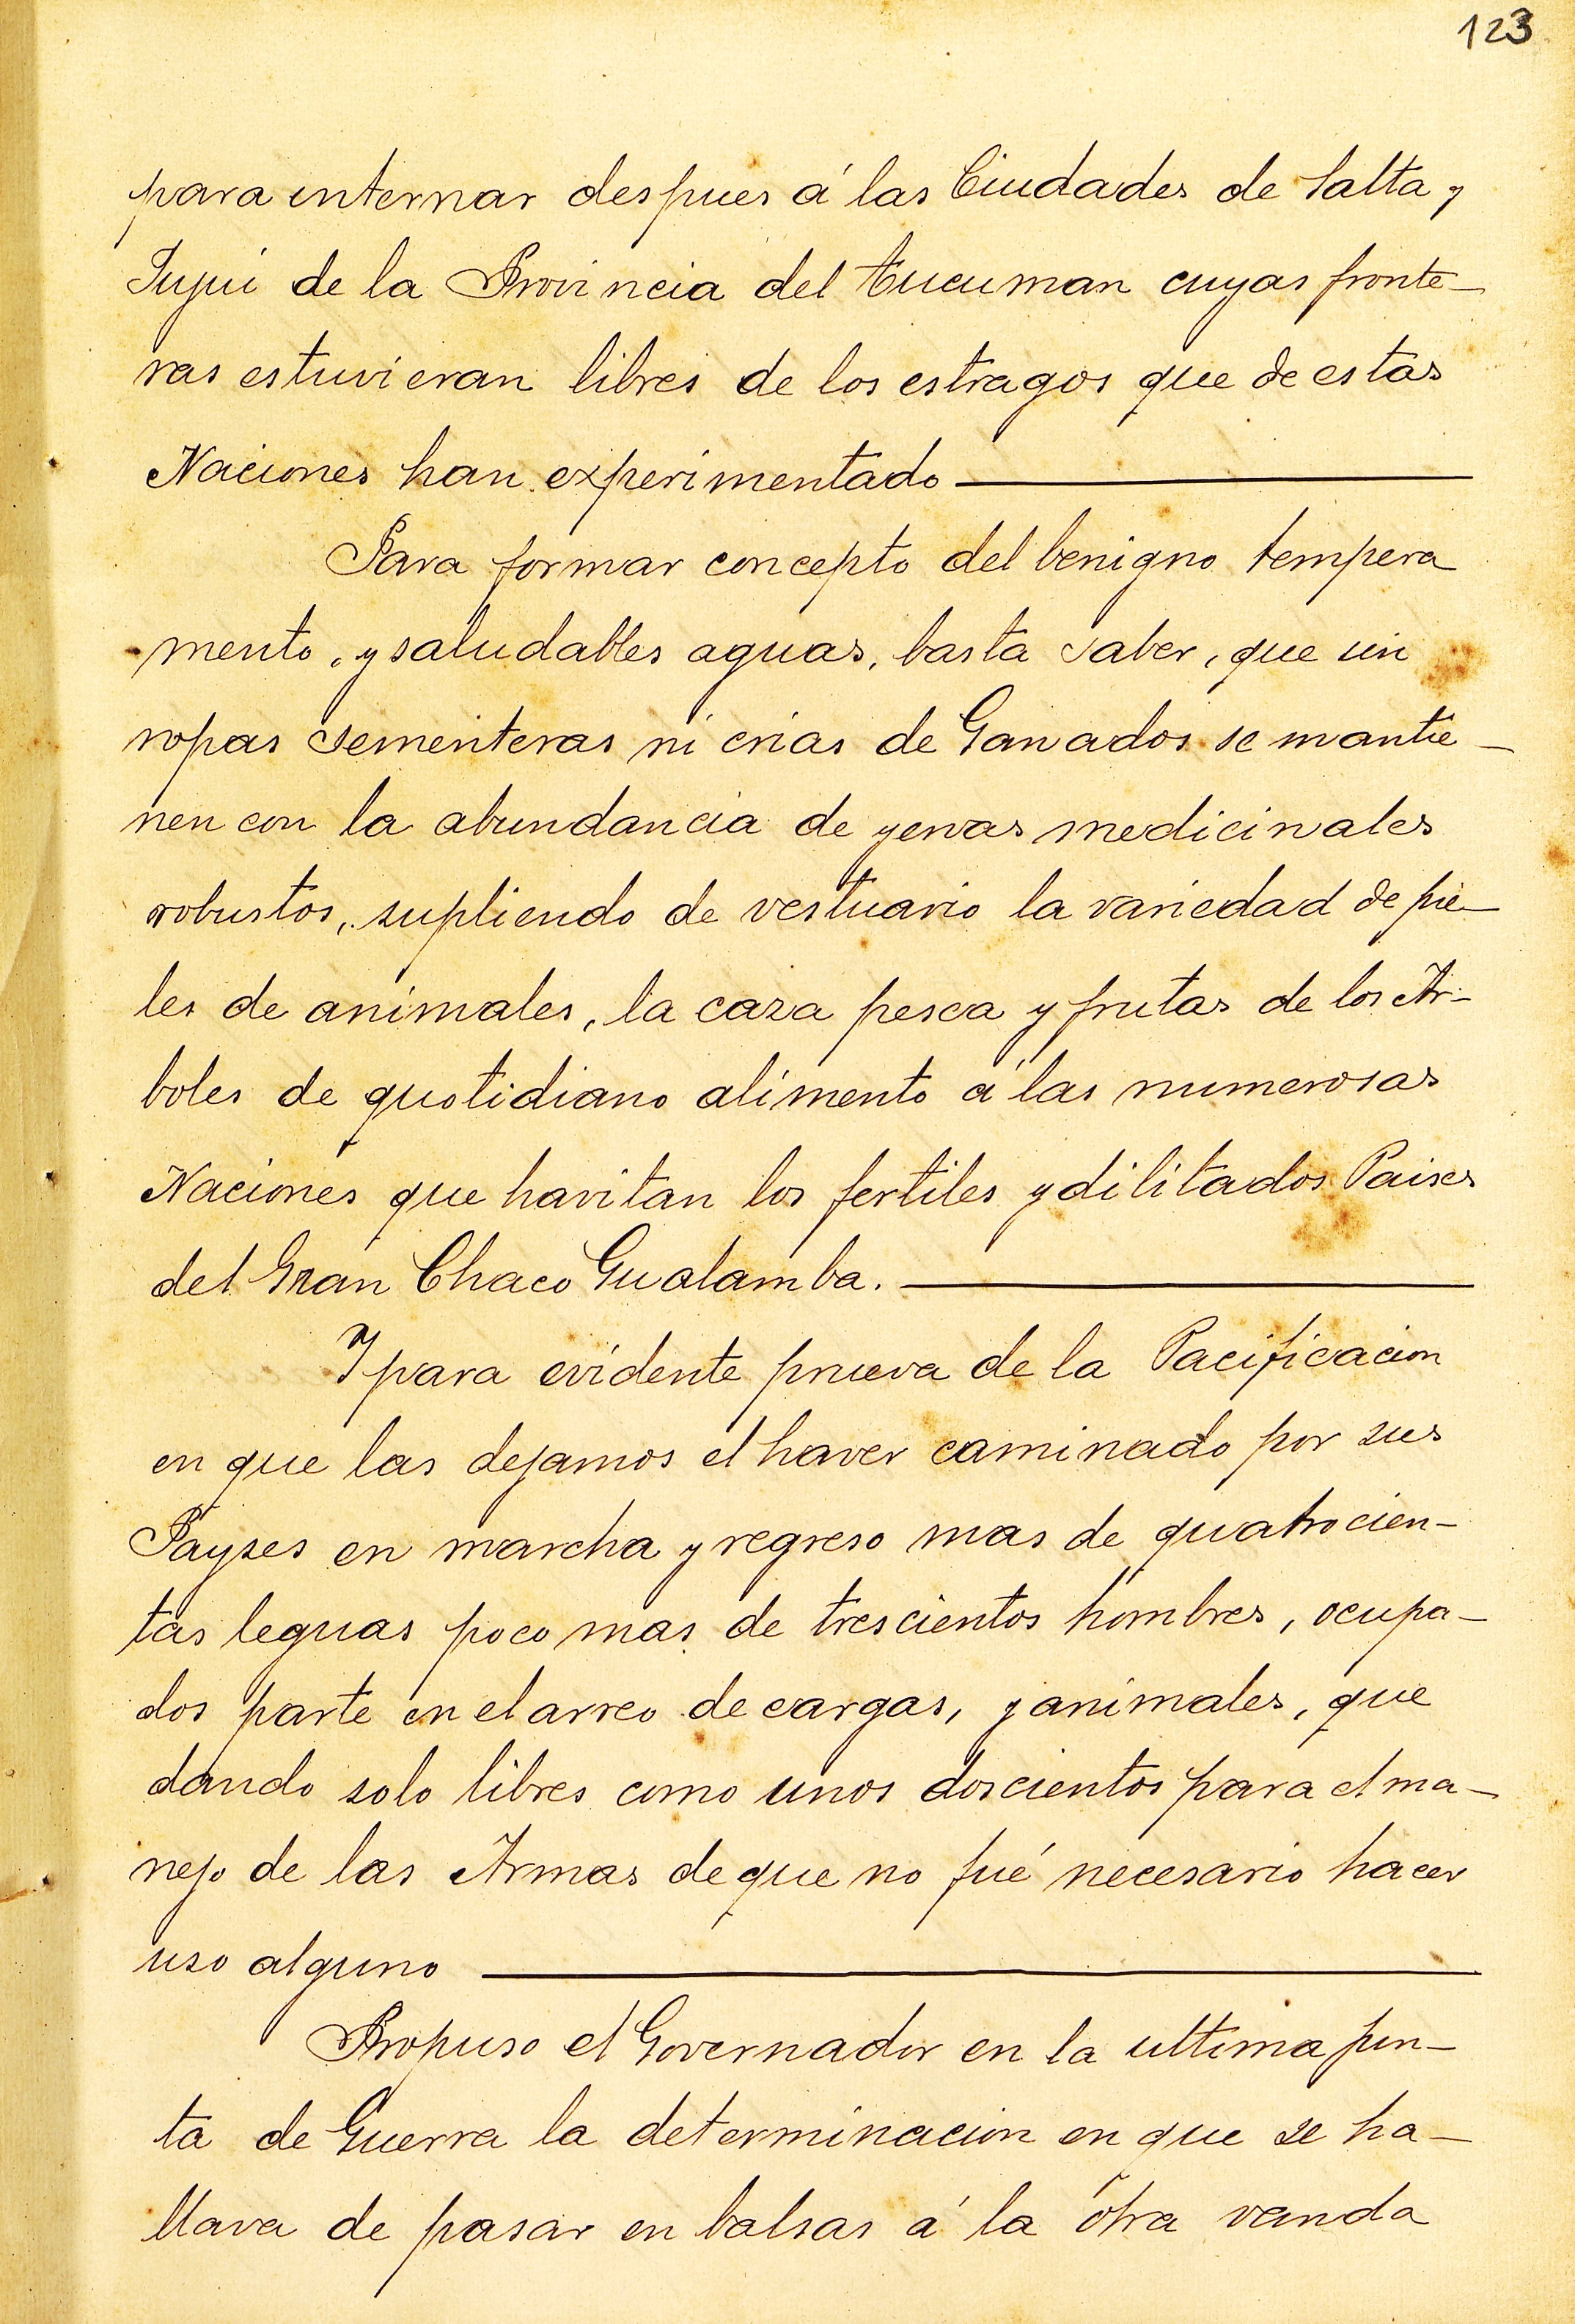 123
para internar despues á las Ciudades de Salta y
Jujui de la Provincia del Tucuman cuyas fronte-
ras estuvieran libres de los estragos que de estas
Naciones han experimentado
Para formar concepto del benigno tempera
mento, y saludables aguas, basta saber, que sin
ropas sementeras ni crias de Ganados se mantie-
nen con la abundancia de yervas medicinales
robustos, supliendo de vestuario la variedad de pie-
les de animales, la caza pesca y frutas de los Ar-
boles de quotidiano alimento á las numerosas
Naciones que havitan los fertiles y dilitados Paises
del Gran Chaco Gualamba.
Y para evidente prueva de la Pacificacion
en que las dejamos el haver caminado por sus
Payses en marcha y regreso mas de quatrocien-
tas leguas poco mas de trescientos hombres, ocupa-
dos parte en el arreo de cargas, y animales, que
dando solo libres como unos doscientos para el ma-
nejo de las Armas de que no fué necesario hacer
uso alguno
Propuso el Governador en la ultima jun-
ta de Guerra la determinacion en que se ha-
llava de pasar en balsas á la ótra vanda